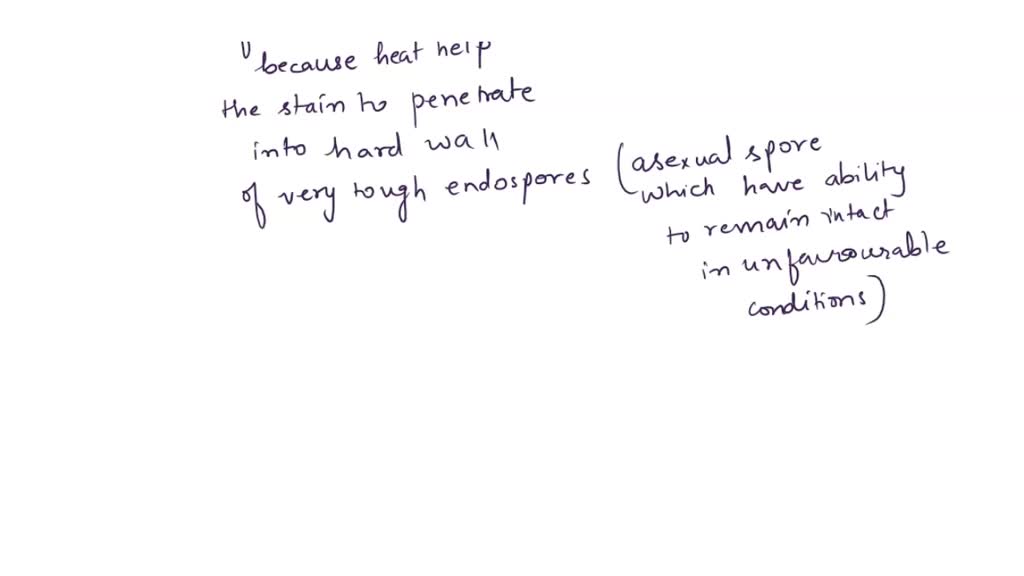 because heat help
the stain to penetrate
into hard wall
of very tough endospores (asexual spore
which have ability
to remain intact
in unfavourable
conditions)